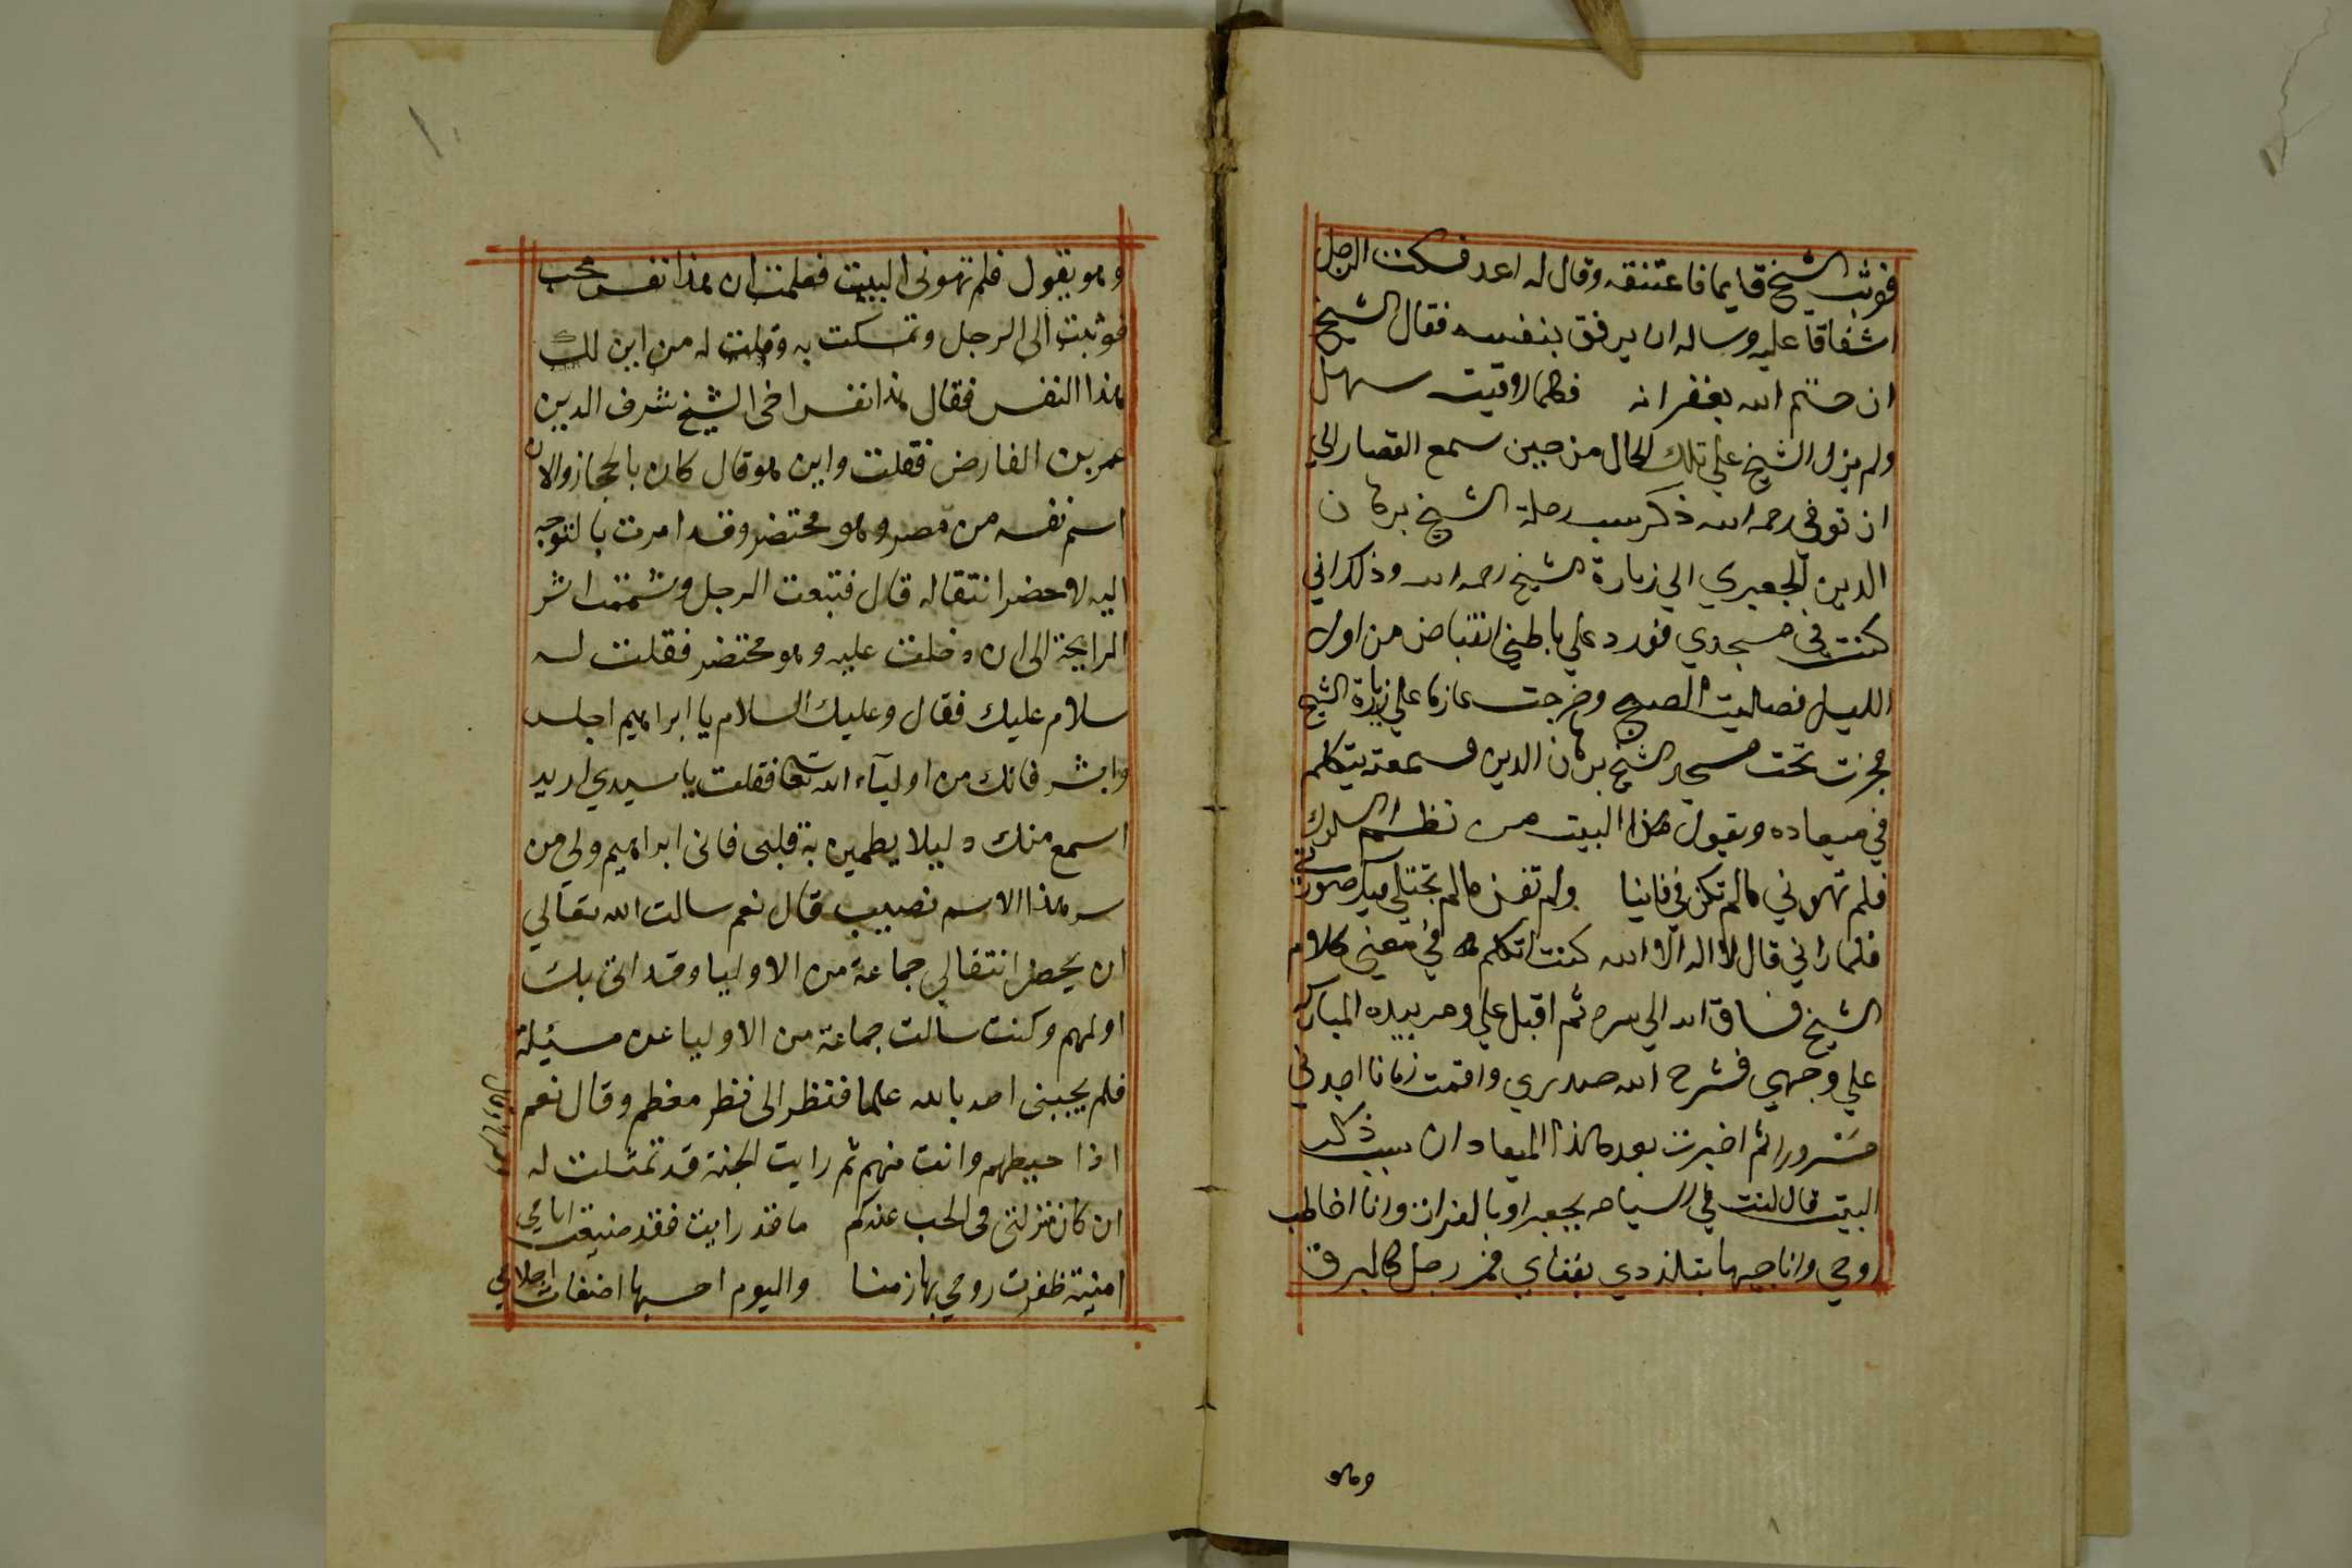 فوثب الشيخ قايما فاعتنقه وقال له اعد فسكت الرجل
اشفاقا عليه وساله ان يرفق بنفسه فقال الشيخ
ان ختم الله بغفرانه فكلما لاقيت سهل
ولم يزل الشيخ علي تلك الحال من حين سمع القصار الي
ان توفي رحمه الله ذكر سبب رحلة الشيخ برهان
الدين الجعبري الي زيارة الشيخ رحمه الله وذلك اني
كنت في مسجدي فورد علي باطني انقباض من اول
الليل فصليت الصبح وخرجت عازما علي زيارة الشيخ
فجزت تحت مسجد الشيخ برهان الدين فسمعته يتكلم
في ميعاده ويقول هذا البيت من نظم السلوك
فلم تهوني مالم تكن في فانيا ولم تفن مالم تجتلي فيك صورتي
فلما راني قال لا اله الا الله كنت اتكلم في معني كلام
الشيخ فساق الله الي سره ثم اقبل علي ومر بيده المباركه
علي وجهي فشرح الله صدري واقمت زمانا اجدني
مسرورا ثم اخبرت بعد هذا الميعاد ان سبب ذكر
البيت قال كنت في السياحه بجعبر او بالفرات وانا اخاطب
روحي واناجيها بتلذذي بفناي فمر رجل كالبرق
وهو
وهو يقول فلم تهونى البيت فعلمت ان هذا نفس محب
فوثبت الى الرجل وتمسكت به وقلت له من اين لك
هذا النفس فقال هذا نفس اخى الشيخ شرف الدين
عمر بن الفارض فقلت واين هو قال كان بالحجاز والان
اشم نفسه من مصر وهو محتضر وقد امرت بالتوجه
اليه لاحضر انتقاله قال فتبعت الرجل وشممت اثر
الرايحة الى ان دخلت عليه وهو محتضر فقلت له
سلام عليك فقال وعليك السلام يا ابراهيم اجلس
وابشر فانك من اوليآء الله تعا فقلت يا سيدي اريد
اسمع منك دليلا يطمين به قلبى فانى ابراهيم ولي من
سر هذا الاسم نصيب قال نعم سالت الله تعالي
ان يحضر انتقالي جماعة من الاوليا وقد اتى بك
اولهم وكنت سالت جماعة من الاوليا عن مسئلة
فلم يجبنى احد بالله علما فنظر الى نظر مغظم وقال نعم
اذا حيطهم وانت منهم ثم رايت الجنة قد تمثلت له
ان كان منزلتى فى الحب عندكم ما قد رايت فقد ضيعت ايامي
امنية ظفرت روحي بها زمنا واليوم احسبها اضغاث احلامي